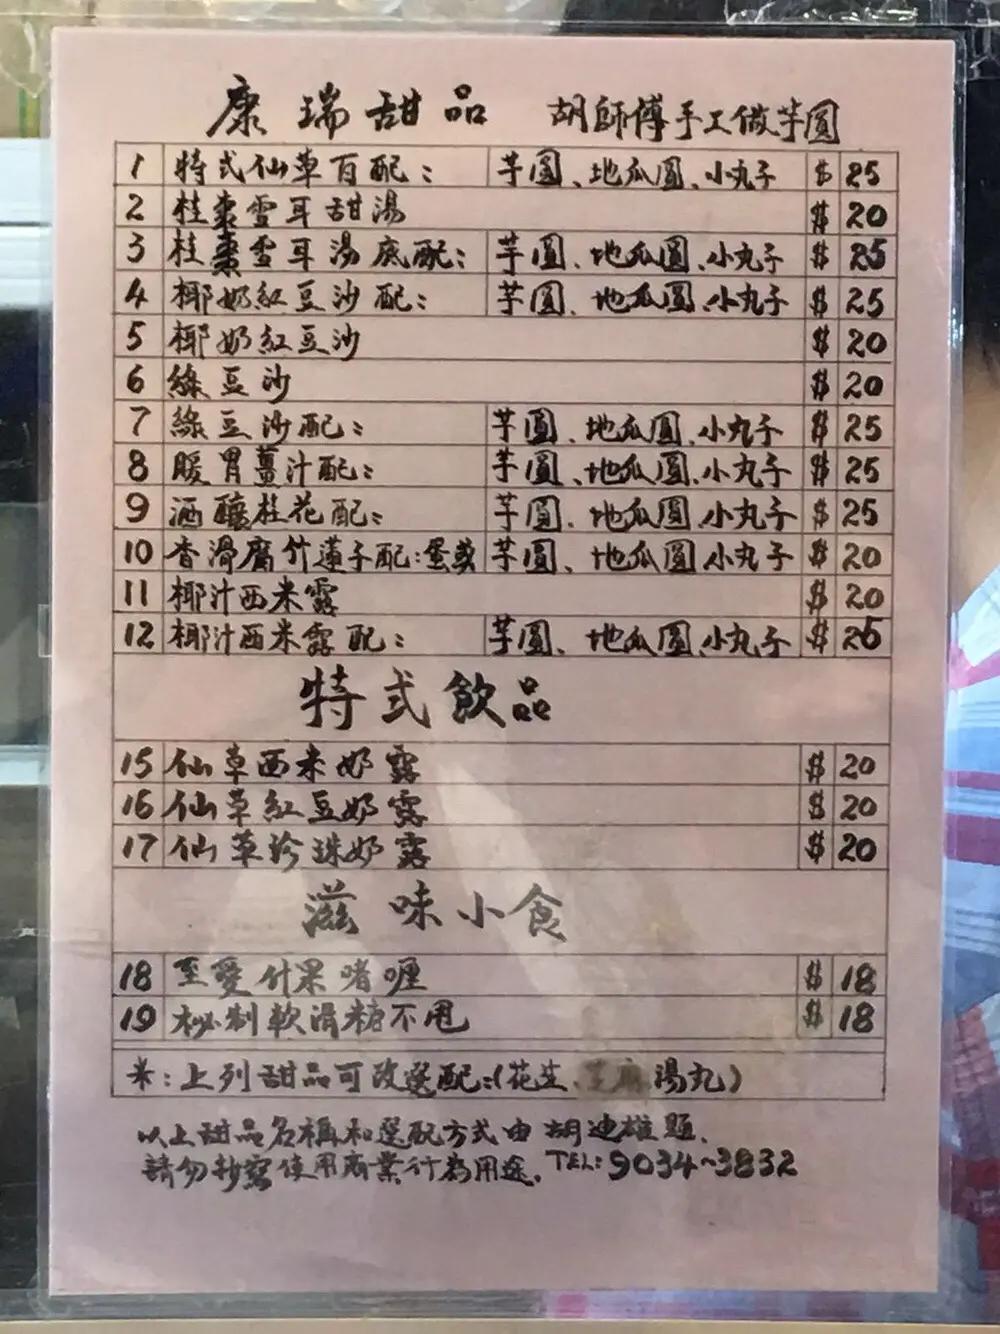 康瑞甜品 胡師傅手工做芋圓
1 特式仙草百配： 芋圓、地瓜圓、小丸子 $ 25
2 桂棗雪耳甜湯 $ 20
3 桂棗雪耳湯底配： 芋圓、地瓜圓、小丸子 $ 25
4 椰奶紅豆沙配： 芋圓、地瓜圓、小丸子 $ 25
5 椰奶紅豆沙 $ 20
6 綠豆沙 $ 20
7 綠豆沙配： 芋圓、地瓜圓、小丸子 $ 25
8 暖胃薑汁配： 芋圓、地瓜圓、小丸子 $ 25
9 酒釀桂花配： 芋圓、地瓜圓、小丸子 $ 25
10 香滑腐竹蓮子配：蛋或 芋圓、地瓜圓、小丸子 $ 20
11 椰汁西米露 $ 20
12 椰汁西米露配： 芋圓、地瓜圓、小丸子 $ 25
特式飲品
15 仙草西米奶露 $ 20
16 仙草紅豆奶露 $ 20
17 仙草珍珠奶露 $ 20
滋味小食
18 至愛什果啫喱 $ 18
19 秘制軟滑糖不甩 $ 18
*：上列甜品可改選配：(花生、芝麻湯丸)
以上甜品名稱和選配方式由胡迪雄題、
請勿抄寫使用商業行為用途。TEL: 9034~3832